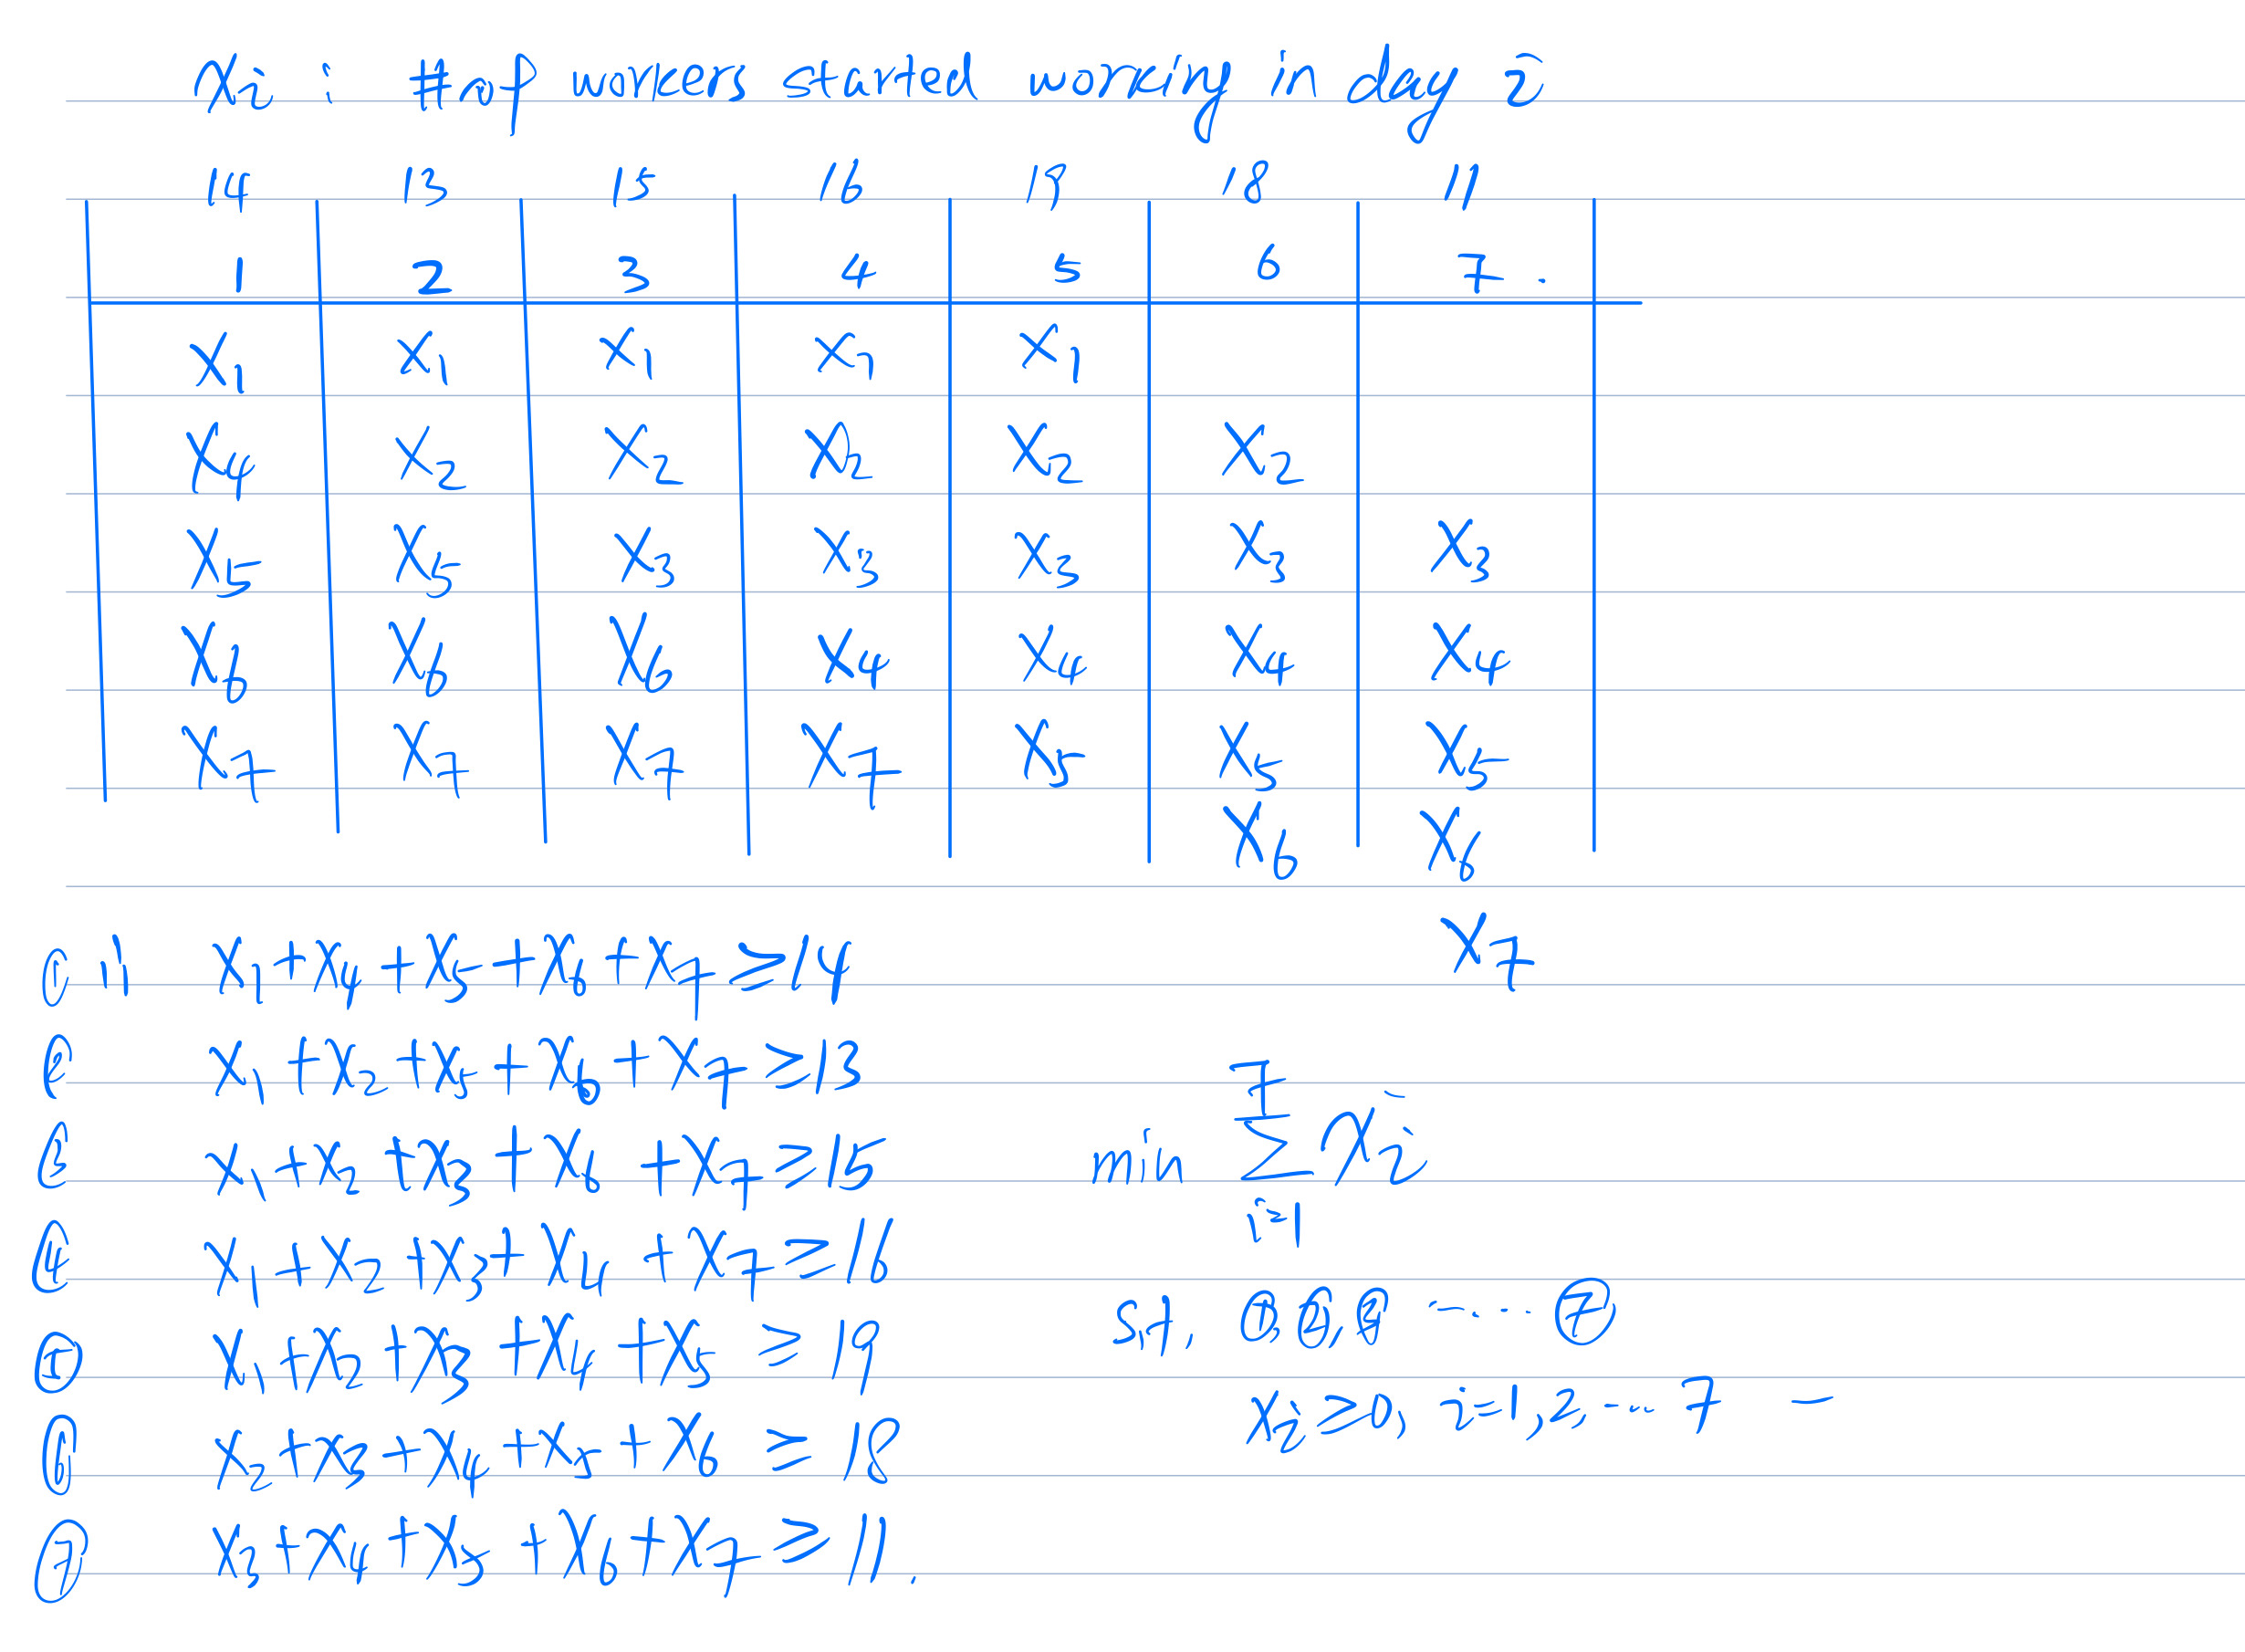 xi : # of workers started working in day i
14 13 15 16 19 18 11
1 2 3 4 5 6 7.
x1 x1 x1 x1 x1
x4 x2 x2 x2 x2 x2
x5 x5 x3 x3 x3 x3 x3
x6 x6 x6 x4 x4 x4 x4
x7 x7 x7 x7 x5 x5 x5
x6 x6
x7
① " x1+x4+x5+x6+x7 ≥14
② x1+x2+x5+x6+x7 ≥13
③ x1+x2+x3+x6+x7 ≥15
④ x1+x2+x3+x4+x7 ≥16
⑤ x1+x2+x3+x4+x5 ≥19
⑥ x2+x3+x4+x5+x6 ≥18
⑦ x3+x4+x5+x6+x7 ≥11.
min 7 Σ i=1 xi
st, ① ② ③ ----- ⑦
xi ≥0, i=1,2--- 7 –